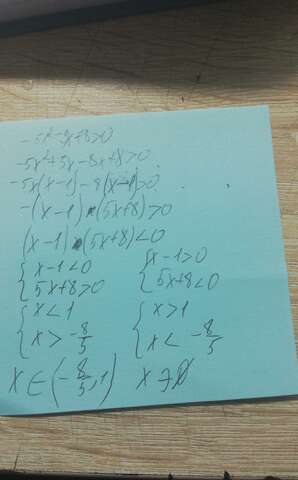 -5x²-3x+8>0
-5x²+5x-8x+8>0
-5x(x-1)-8(x-1)>0
-(x-1)·(5x+8)>0
(x-1)·(5x+8)<0
{x-1<0 {x-1>0
{5x+8>0 {5x+8<0
{x<1 {x>1
{x>-8/5 {x<-8/5
x∈(-8/5,1) x∌∅